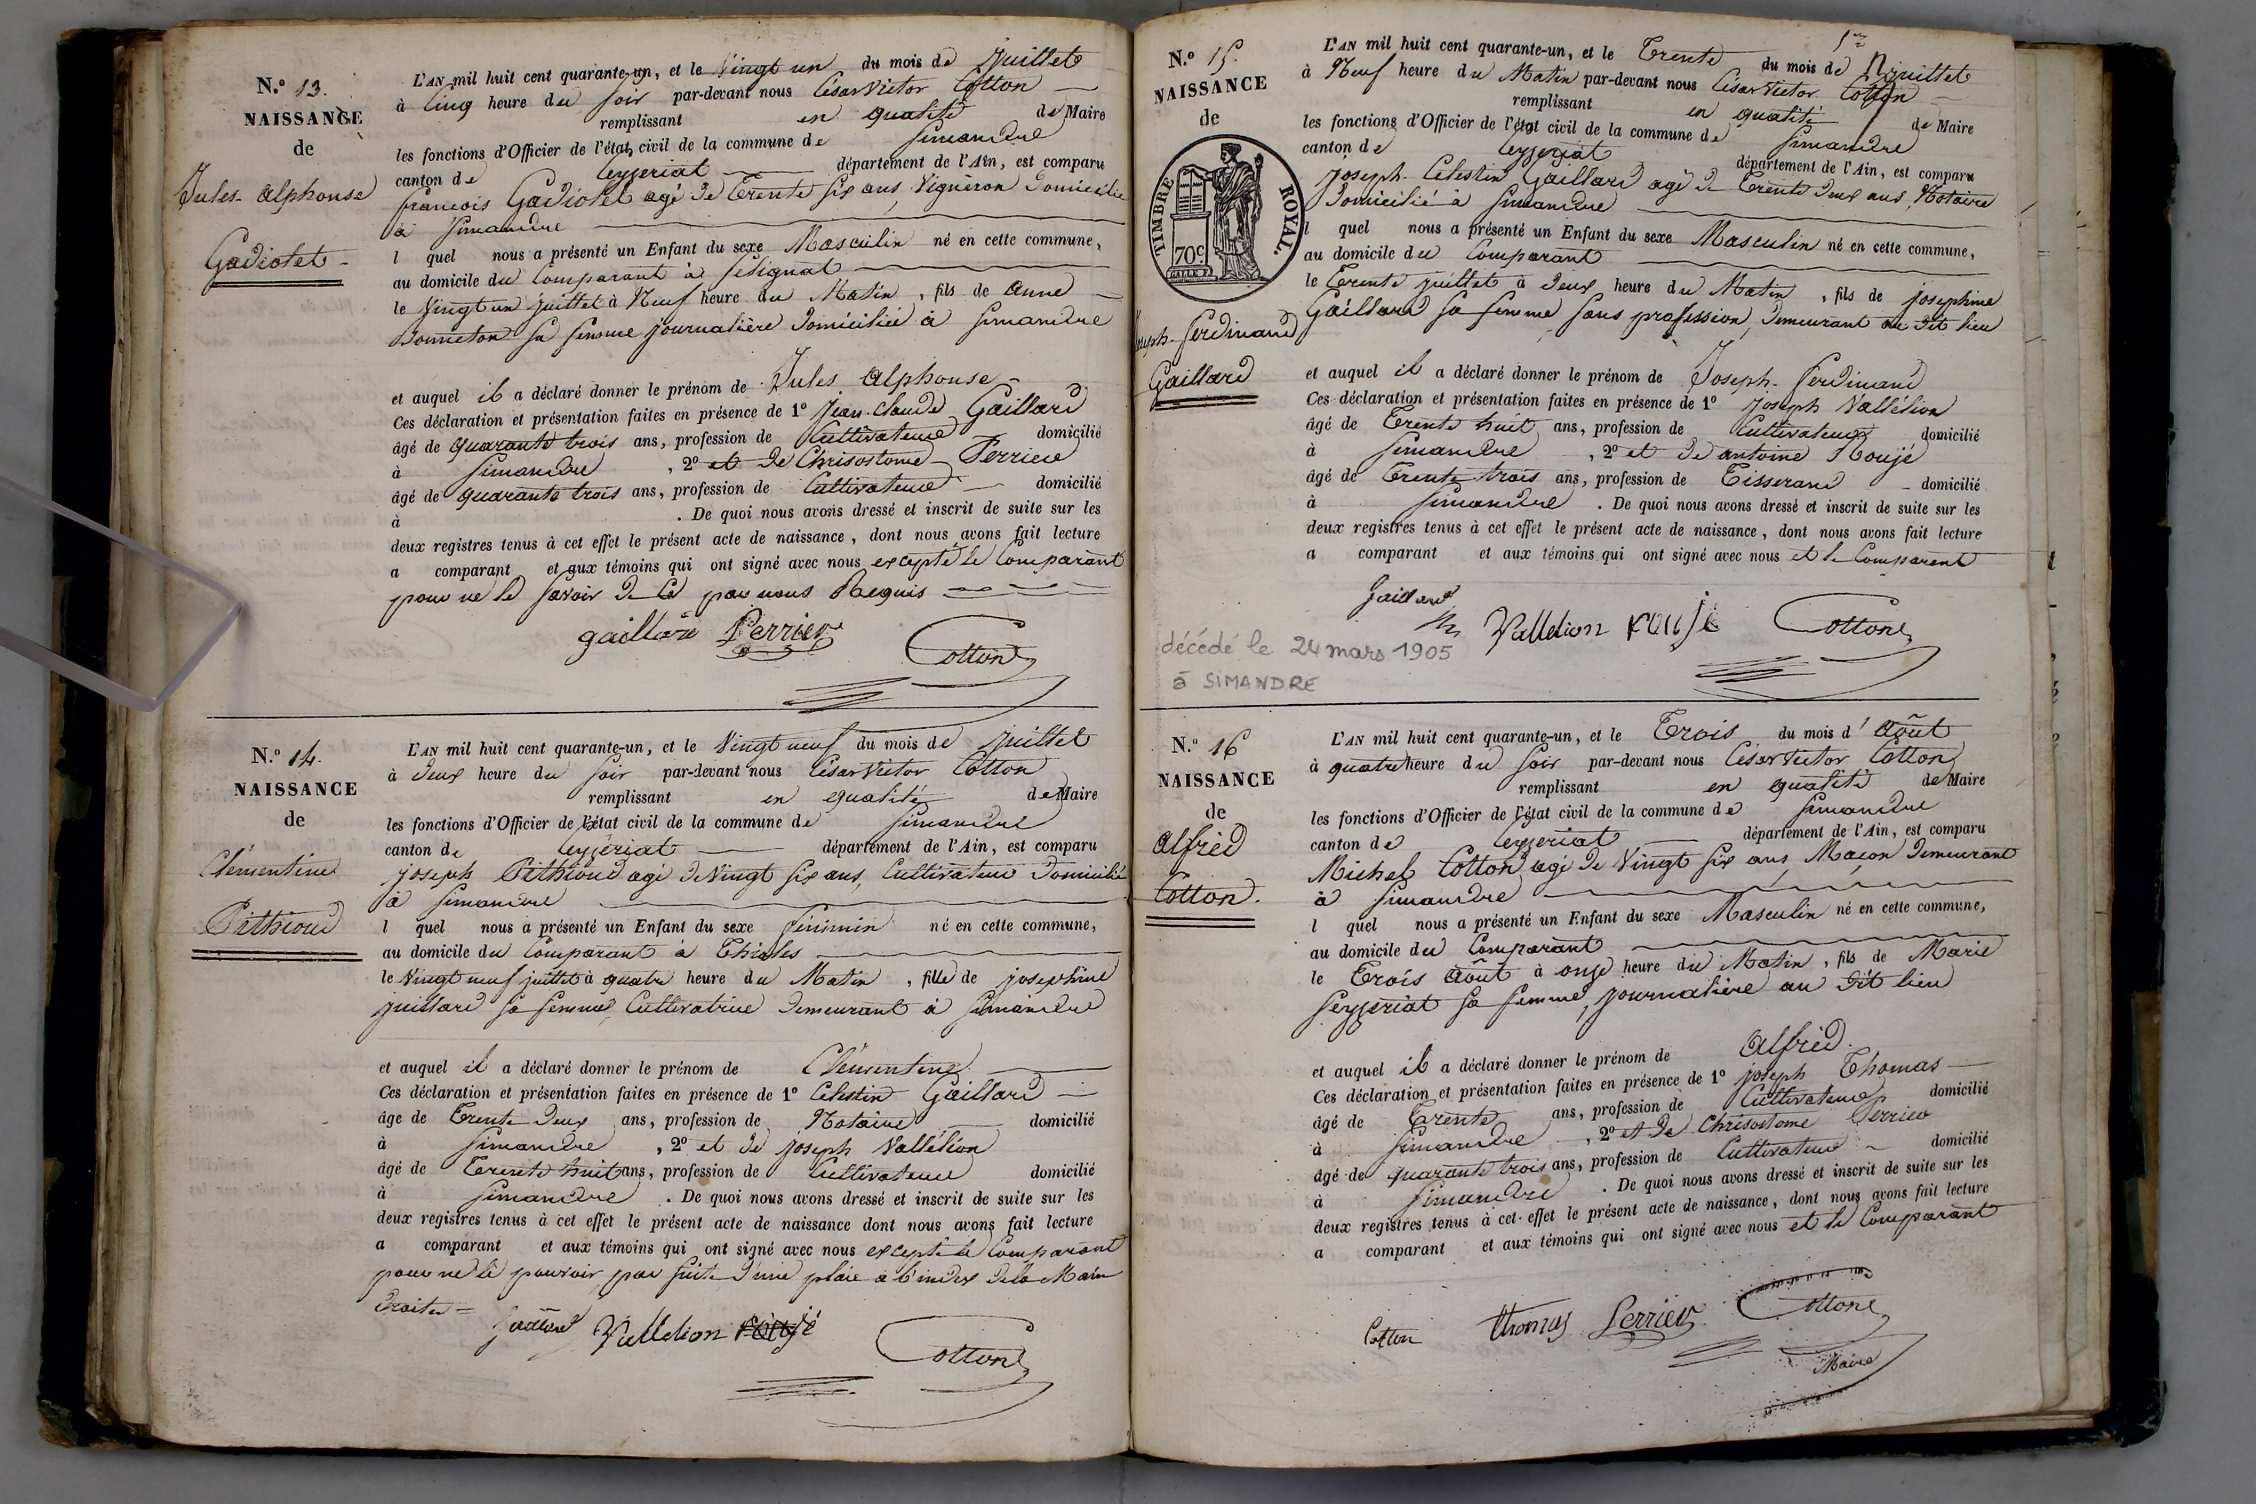 N.º 13.
NAISSANCE
de
Jules-Alphonse
Gadiolet
L'AN mil huit cent quarante-un, et le Vingt un du mois de Juillet
à Cinq heure du Soir par-devant nous César Victor Cotton
remplissant en qualité de Maire
les fonctions d'Officier de l'état civil de la commune de Simandre
canton de Ceyzeriat département de l'Ain, est comparu
francois Gadiolet agé de Trente six ans, Vigneron Domicilié
à Simandre
l quel nous a présenté un Enfant du sexe Masculin né en cette commune,
au domicile du Comparant à Sélignat
le Vingt un juillet à Neuf heure du Matin, fils de Anne
Bonneton sa femme journalière Domiciliée à Simandre
et auquel il a déclaré donner le prénom de Jules Alphonse
Ces déclaration et présentation faites en présence de 1º Jean-Claude Gaillard
âgé de quarante trois ans, profession de Cultivateur domicilié
à Simandre, 2º et de Chrisostome Perrier
âgé de quarante trois ans, profession de Cultivateur domicilié
à . De quoi nous avons dressé et inscrit de suite sur les
deux registres tenus à cet effet le présent acte de naissance, dont nous avons fait lecture
a comparant et aux témoins qui ont signé avec nous excepté le Comparant
pour ne le Savoir de Ce par nous Requis
gaillard Perrier Cotton
N.º 14.
NAISSANCE
de
Clémentine
Pithioud
L'AN mil huit cent quarante-un, et le Vingt neuf du mois de Juillet
à Deux heure du Soir par-devant nous César Victor Cotton
remplissant en qualité de Maire
les fonctions d'Officier de l'état civil de la commune de Simandre
canton de Ceyzériat département de l'Ain, est comparu
joseph Pithioud agé de Vingt six ans, Cultivateur Domicilié
à Simandre
l quel nous a présenté un Enfant du sexe féminin né en cette commune,
au domicile du Comparant à Thioles
le Vingt neuf juillet à quatre heure du Matin, fille de josephine
juillard sa femme, Cultivatrice Demeurant à Simandre
et auquel il a déclaré donner le prénom de Clémentine
Ces déclaration et présentation faites en présence de 1º Celestin Gaillard
âge de Trente Deux ans, profession de Notaire domicilié
à Simandre, 2º et de joseph Vallélion
âgé de Trente huit ans, profession de Cultivateur domicilié
à Simandre. De quoi nous avons dressé et inscrit de suite sur les
deux registres tenus à cet effet le présent acte de naissance dont nous avons fait lecture
a comparant et aux témoins qui ont signé avec nous excepté le Comparant
pour ne le pouvoir, par suite d'une plaie à l'index de la Main
Droite
Gaillard Vallelion Roujé Cotton
N.º 15.
NAISSANCE
de
TIMBRE ROYAL.
70c.
Joseph-ferdinand
Gaillard
L'AN mil huit cent quarante-un, et le Trente du mois de Juillet
à Neuf heure du Matin par-devant nous César Victor Cotton
remplissant en qualité de Maire
les fonctions d'Officier de l'état civil de la commune de Simandre
canton de Ceyzeriat département de l'Ain, est comparu
joseph-Celestin Gaillard agé de Trente Deux ans, Notaire
Domicilié à Simandre
l quel nous a présenté un Enfant du sexe Masculin né en cette commune,
au domicile du Comparant
le Trente juillet à Deux heure du Matin, fils de josephine
Gaillard sa femme sans profession, Demeurant au Dit lieu
et auquel il a déclaré donner le prénom de Joseph-ferdinand
Ces déclaration et présentation faites en présence de 1º joseph Vallélion
âgé de Trente huit ans, profession de Cultivateur domicilié
à Simandre, 2º et de antoine Roujé
âgé de Trente trois ans, profession de Tisserand domicilié
à Simandre. De quoi nous avons dressé et inscrit de suite sur les
deux registres tenus à cet effet le présent acte de naissance, dont nous avons fait lecture
a comparant et aux témoins qui ont signé avec nous et le Comparent
Gaillard Vallelion Roujé Cotton
décédé le 24 mars 1905
à SIMANDRE
N.º 16
NAISSANCE
de
Alfréd
Cotton.
L'AN mil huit cent quarante-un, et le Trois du mois d'Août
à quatre heure du Soir par-devant nous César Victor Cotton
remplissant en qualité de Maire
les fonctions d'Officier de l'état civil de la commune de Simandre
canton de Ceyzeriat département de l'Ain, est comparu
Michel Cotton agé de Vingt six ans, Maçon Demeurant
à Simandre
l quel nous a présenté un Enfant du sexe Masculin né en cette commune,
au domicile du Comparant
le Trois Août à onze heure du Matin, fils de Marie
Seyzeriat sa femme, journalière au Dit lieu
et auquel il a déclaré donner le prénom de Alfréd.
Ces déclaration et présentation faites en présence de 1º joseph Thomas
âgé de Trente ans, profession de Cultivateur domicilié
à Simandre, 2º et de Chrisostome Perrier
âgé de quarante trois ans, profession de Cultivateur domicilié
à Simandre. De quoi nous avons dressé et inscrit de suite sur les
deux registres tenus à cet effet le présent acte de naissance, dont nous avons fait lecture
a comparant et aux témoins qui ont signé avec nous et le Comparant
Cotton Thomas Perrier Cotton
Maire